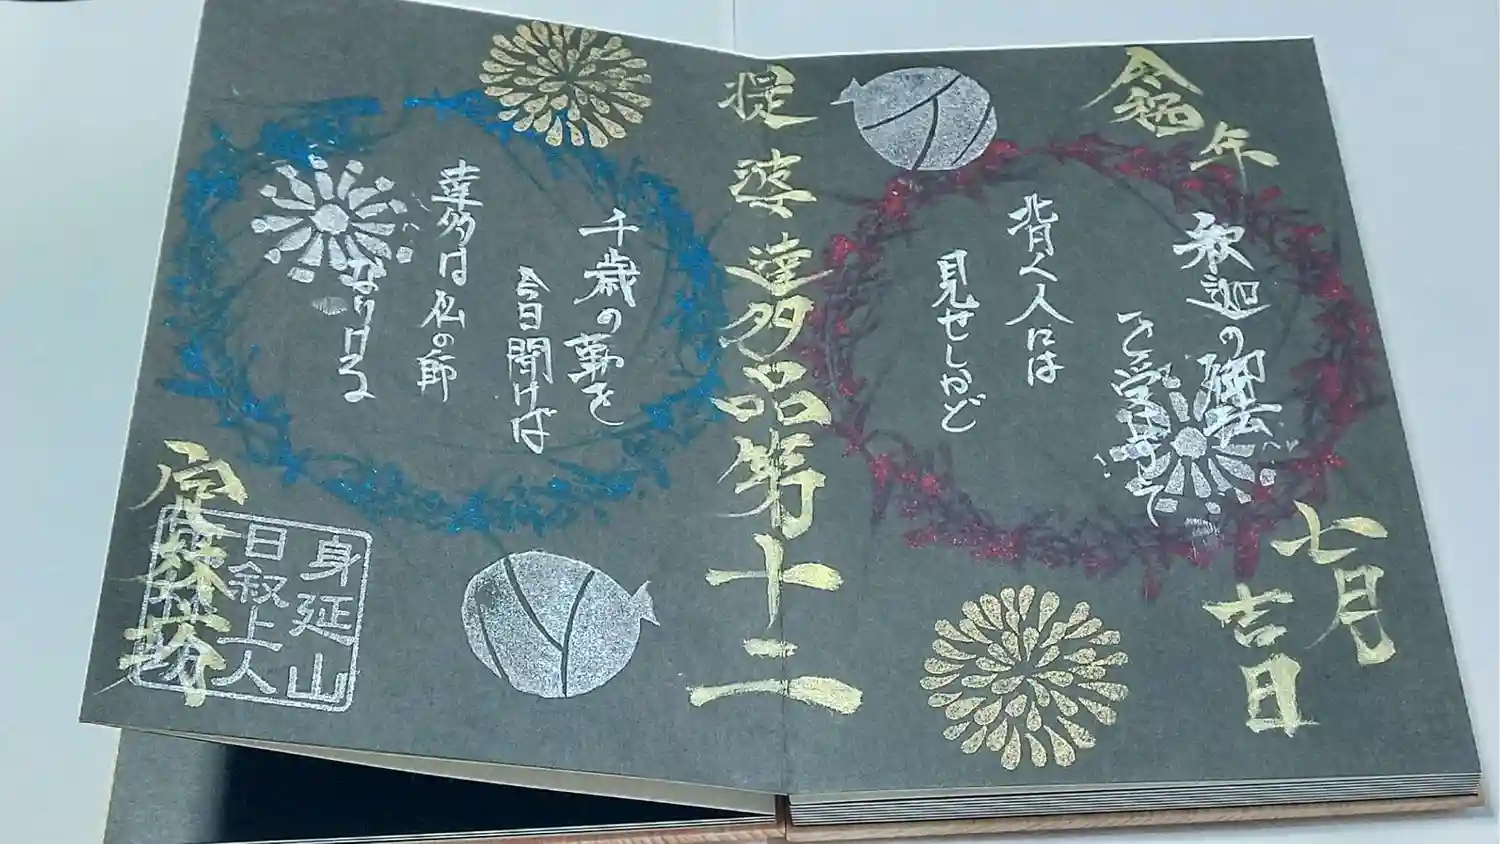 令和
年
七月
吉日
釈迦の御法
を受ずして
背く人には
見せしかど
提婆達多品第十二
千歳の勤を
今日聞けば
達多は仏の師
なりける
定林坊
身延山
日叙上人